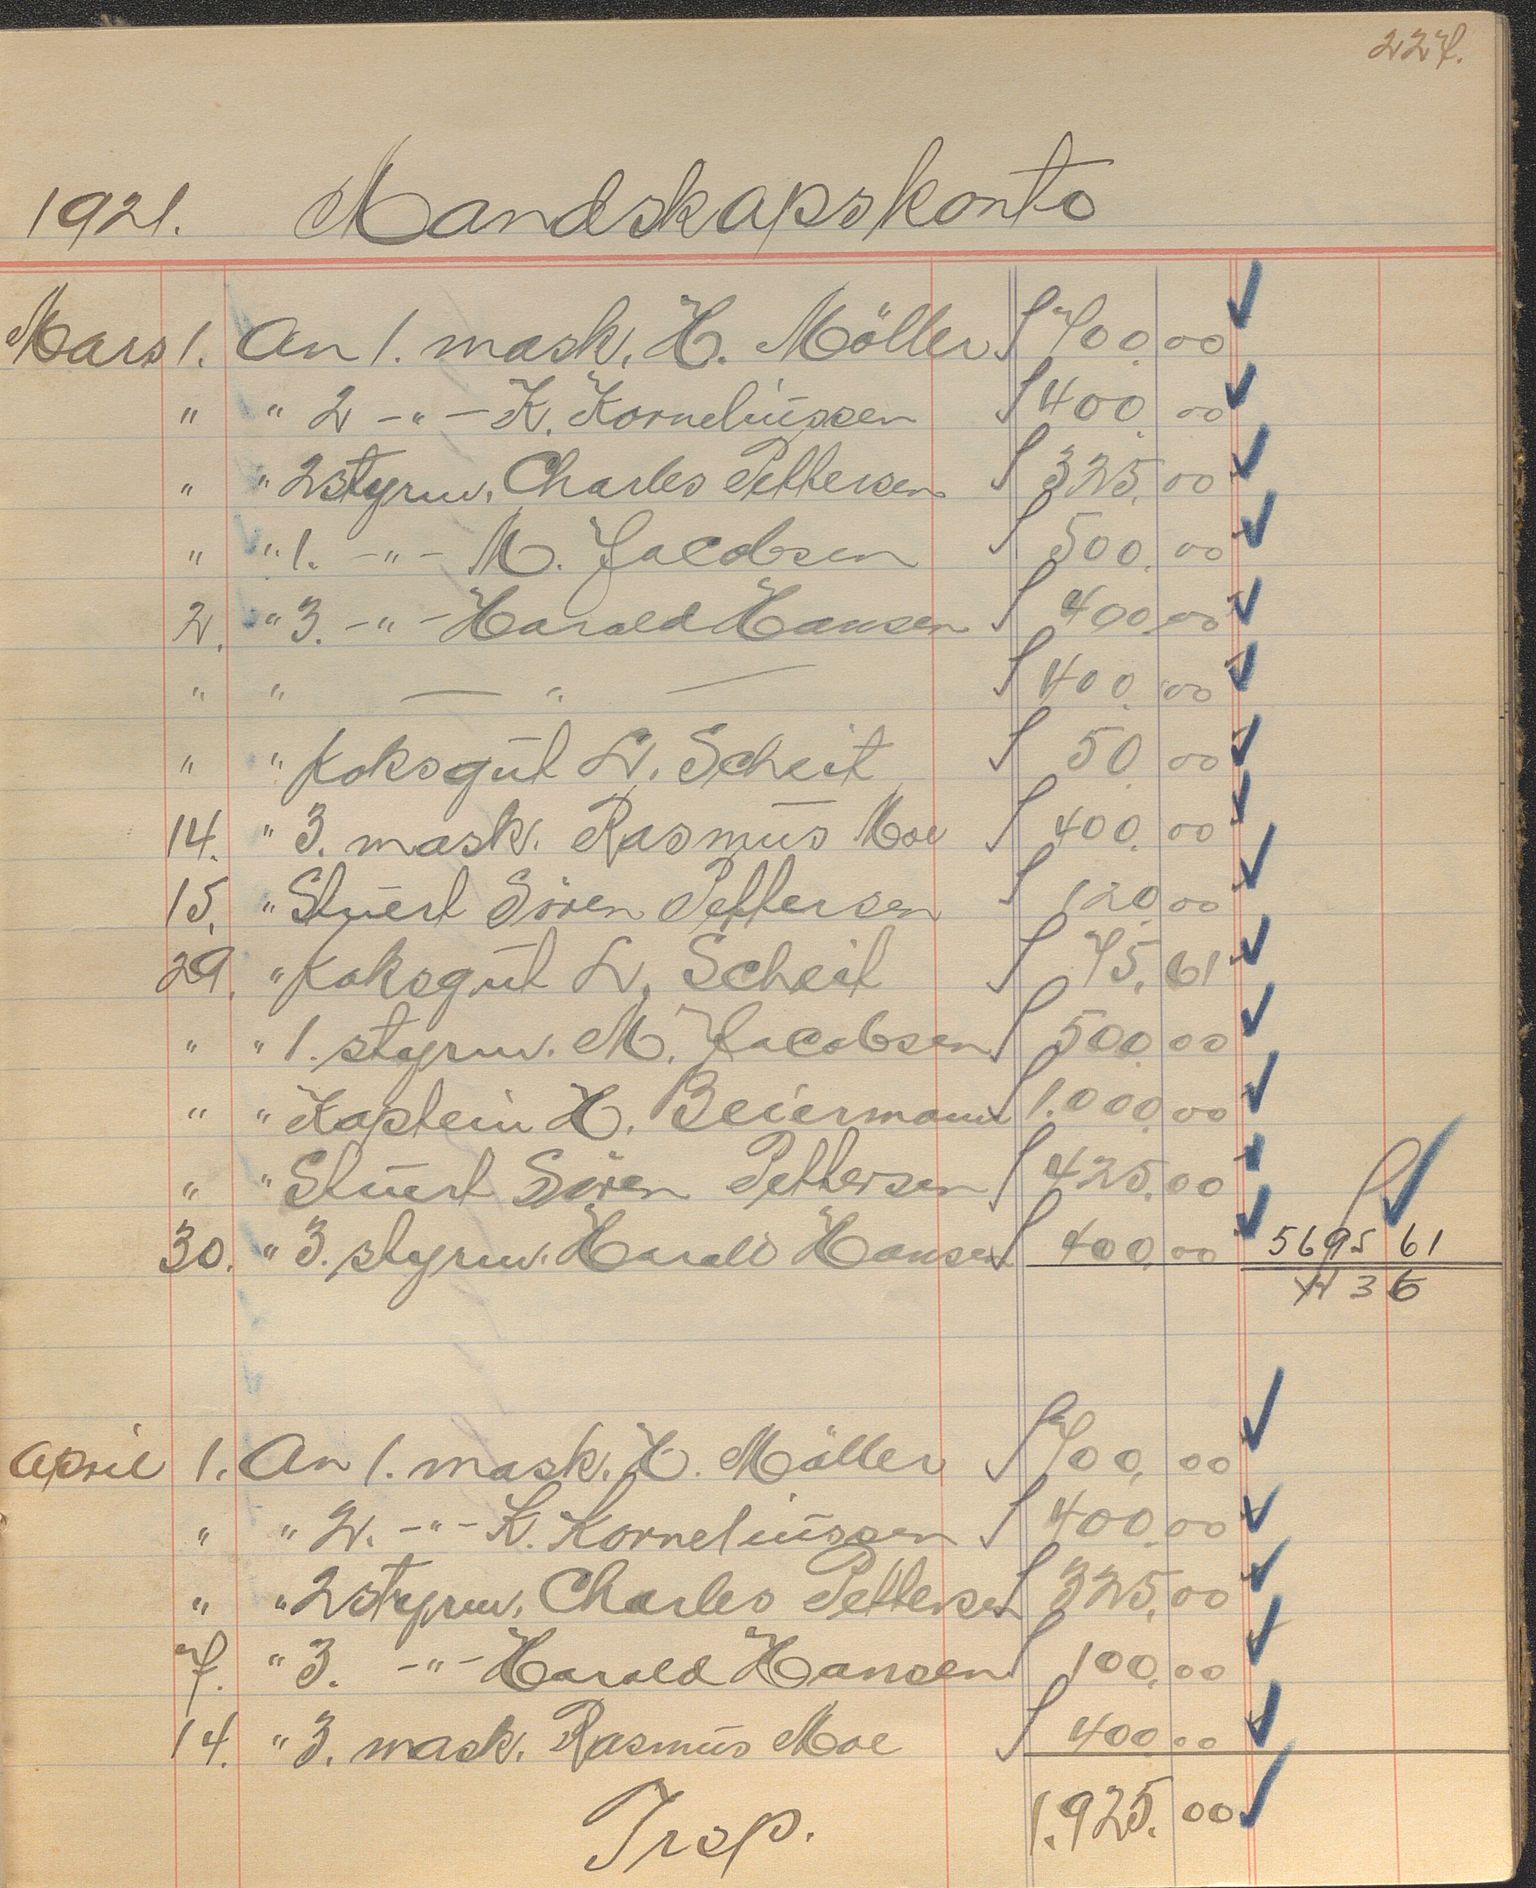 227.
1921. Mandskapskonto
Mars 1. An 1. mask. H. Möller 700.00
" " 2 -"- K. Korneliussen 400.00
" " 2 styrm. Charles Pettersen 325.00
" " 1. -"- M. Jacobsen 500.00
2. " 3. -"- Harald Hansen 400.00
" " — " — 400.00
" " Koksgut L. Scheit 50.00
14. " 3. mask. Rasmus Moe 400.00
15. " Stuert Sören Pettersen 120.00
29. " Koksgut L. Scheit 75.61
" " 1. styrm. M. Jacobsen 500.00
" " Kaptein H. Beiermann 1.000.00
" " Stuert Sören Pettersen 425.00
30. " 3. styrm. Harald Hansen 400.00 5695 61
36
April 1. An 1. mask. H. Möller 700.00
" " 2. -"- K. Korneliussen 400.00
" " 2 styrm. Charles Pettersen 325.00
7. " 3. -"- Harald Hansen 100.00
14. " 3. mask. Rasmus Moe 400.00
Trsp. 1.925.00